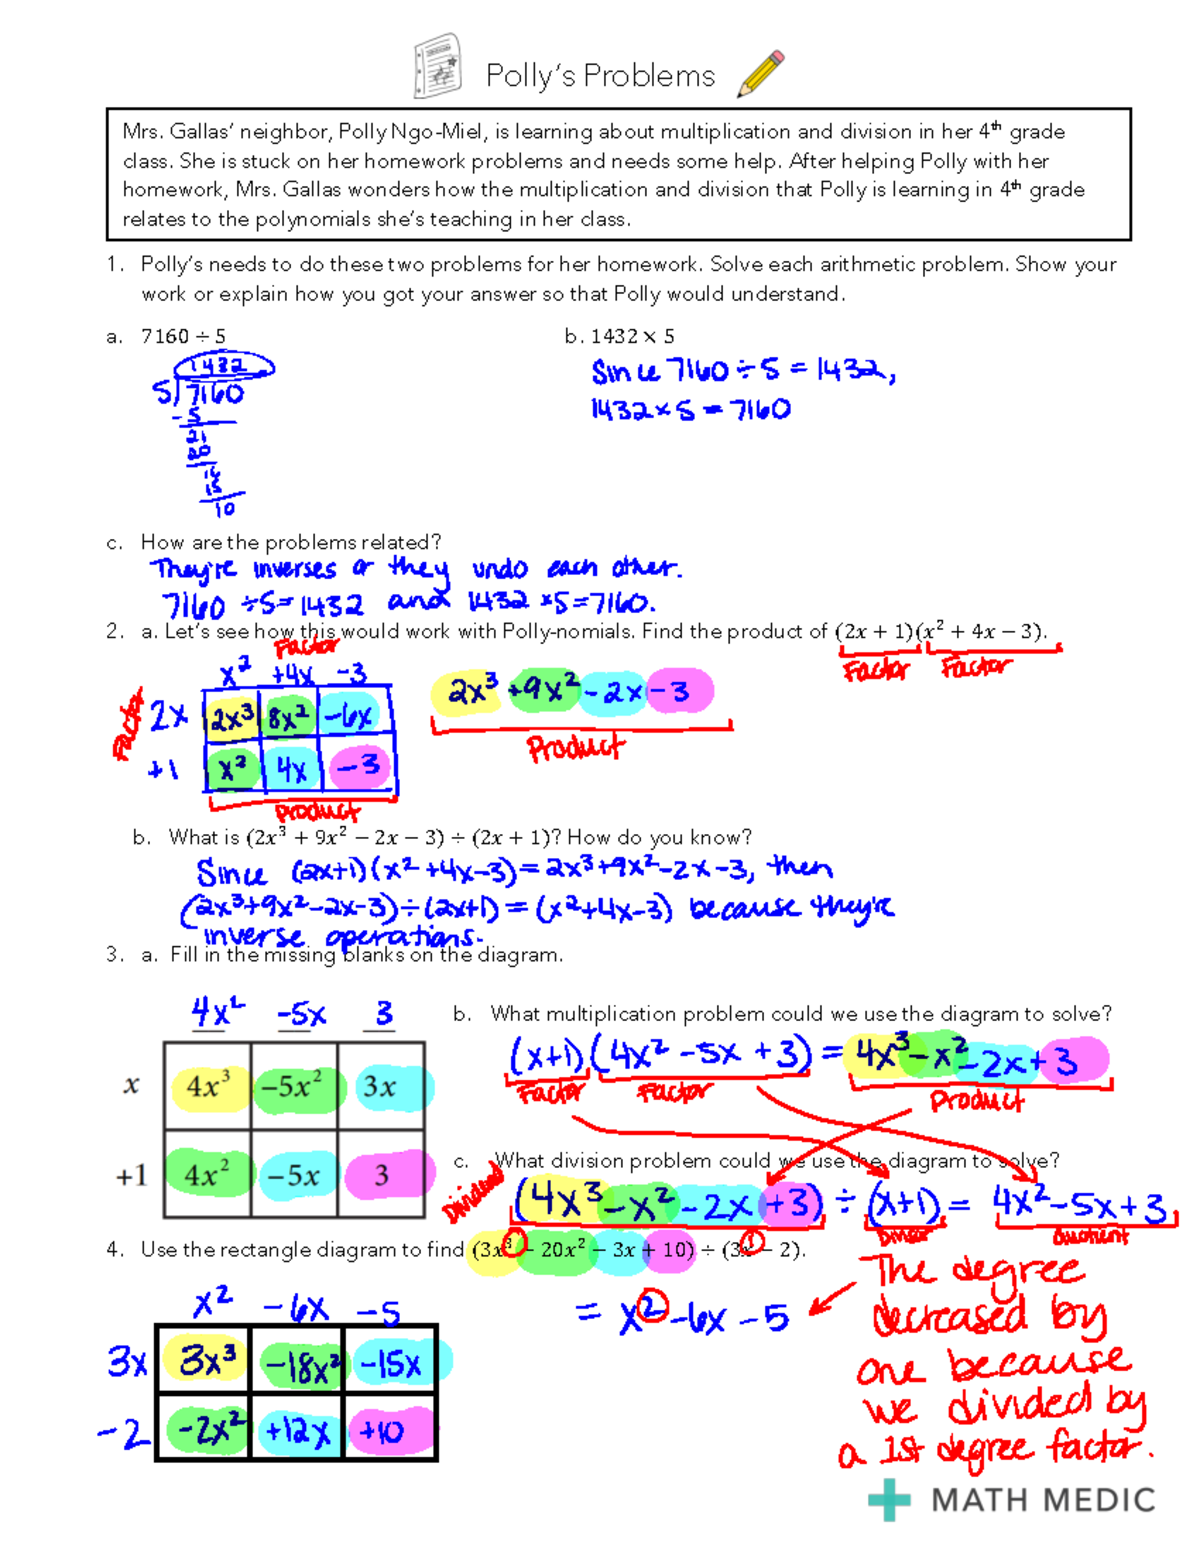 Polly's Problems
Mrs. Gallas' neighbor, Polly Ngo-Miel, is learning about multiplication and division in her 4th grade
class. She is stuck on her homework problems and needs some help. After helping Polly with her
homework, Mrs. Gallas wonders how the multiplication and division that Polly is learning in 4th grade
relates to the polynomials she's teaching in her class.
1. Polly's needs to do these two problems for her homework. Solve each arithmetic problem. Show your
work or explain how you got your answer so that Polly would understand.
a. 7160 ÷ 5
b. 1432 × 5
1432
5)7160
-5
21
20
16
15
10
Since 7160 ÷ 5 = 1432,
1432 × 5 = 7160
c. How are the problems related?
They're inverses or they undo each other.
7160 ÷ 5 = 1432 and 1432 × 5 = 7160.
2. a. Let's see how this would work with Polly-nomials. Find the product of (2x + 1)(x² + 4x − 3).
Factor
Factor Factor
x² +4x -3
Factor
2x 2x³ 8x² -6x
+1 x² 4x -3
Product
2x³ +9x² -2x -3
Product
b. What is (2x³ + 9x² − 2x − 3) ÷ (2x + 1)? How do you know?
Since (2x+1)(x²+4x-3) = 2x³+9x²-2x-3, then
(2x³+9x²-2x-3) ÷ (2x+1) = (x²+4x-3) because they're
inverse operations.
3. a. Fill in the missing blanks on the diagram.
4x² -5x 3
x 4x³ −5x² 3x
+1 4x² −5x 3
b. What multiplication problem could we use the diagram to solve?
(x+1)(4x² -5x +3) = 4x³ -x² -2x +3
Factor Factor Product
c. What division problem could we use the diagram to solve?
Dividend
(4x³ -x² -2x +3) ÷ (x+1) = 4x² -5x +3
Divisor Quotient
4. Use the rectangle diagram to find (3x³ − 20x² − 3x + 10) ÷ (3x − 2).
1
x² -6x -5
3x 3x³ -18x² -15x
-2 -2x² +12x +10
= x² -6x -5
The degree
decreased by
one because
we divided by
a 1st degree factor.
MATH MEDIC